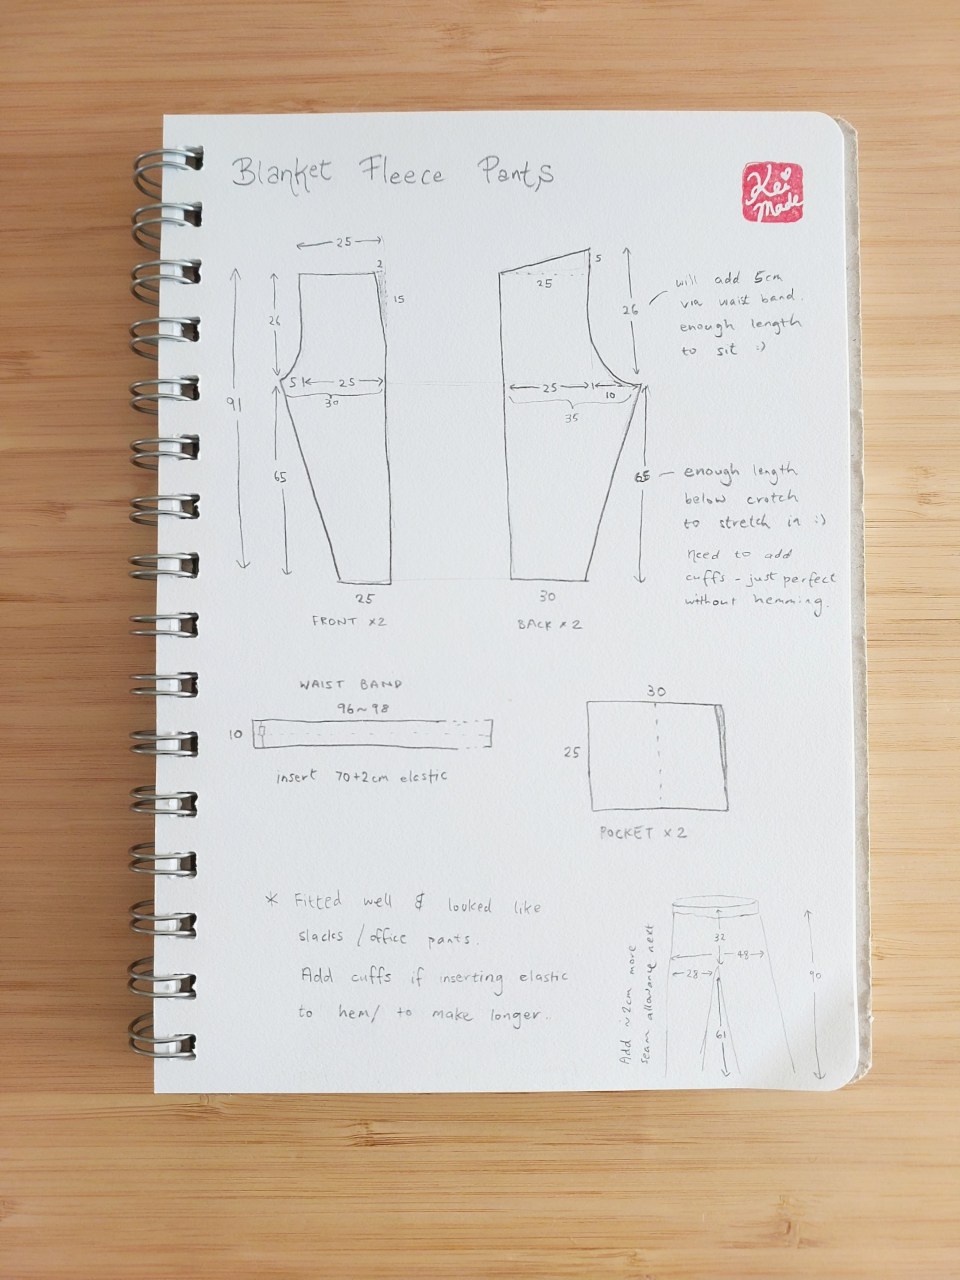 Blanket Fleece Pants
Kei
Made
25
2
15
26
91
5
25
30
65
25
FRONT x2
5
25
26
25
10
35
65
30
BACK x2
will add 5cm
via waist band.
enough length
to sit :)
enough length
below crotch
to stretch in :)
need to add
cuffs - just perfect
without hemming.
WAIST BAND
96~98
10
insert 70+2cm elastic
30
25
POCKET x2
* Fitted well & looked like
slacks / office pants.
Add cuffs if inserting elastic
to hem/ to make longer.
Add ~2cm more
seam allowance next
32
48
28
90
61